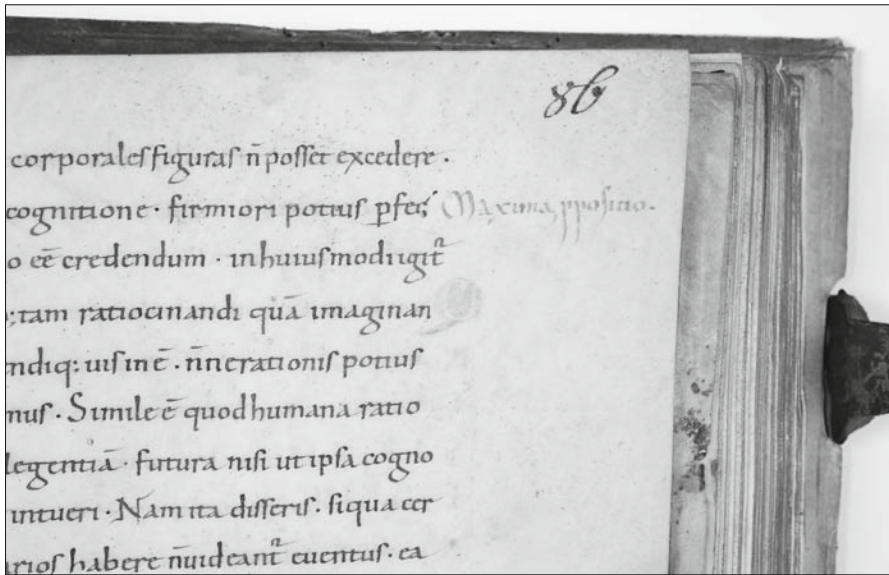 86
corporales figuras n̄ posset excedere .
cognitione · firmiori potius Maxima, ꝓpositio.
o eē credendum · in huiusmodi igit᷑
tam ratiocinandi quā imaginan
ndiq: uis in ē . n̄ne rationis potius
mus . Simile ē quod humana ratio
legentiā · futura nisi ut ipsa cogno
intueri · Nam ita disseris . siqua cer
arios habere n̄ uideant᷑ euentus · ea